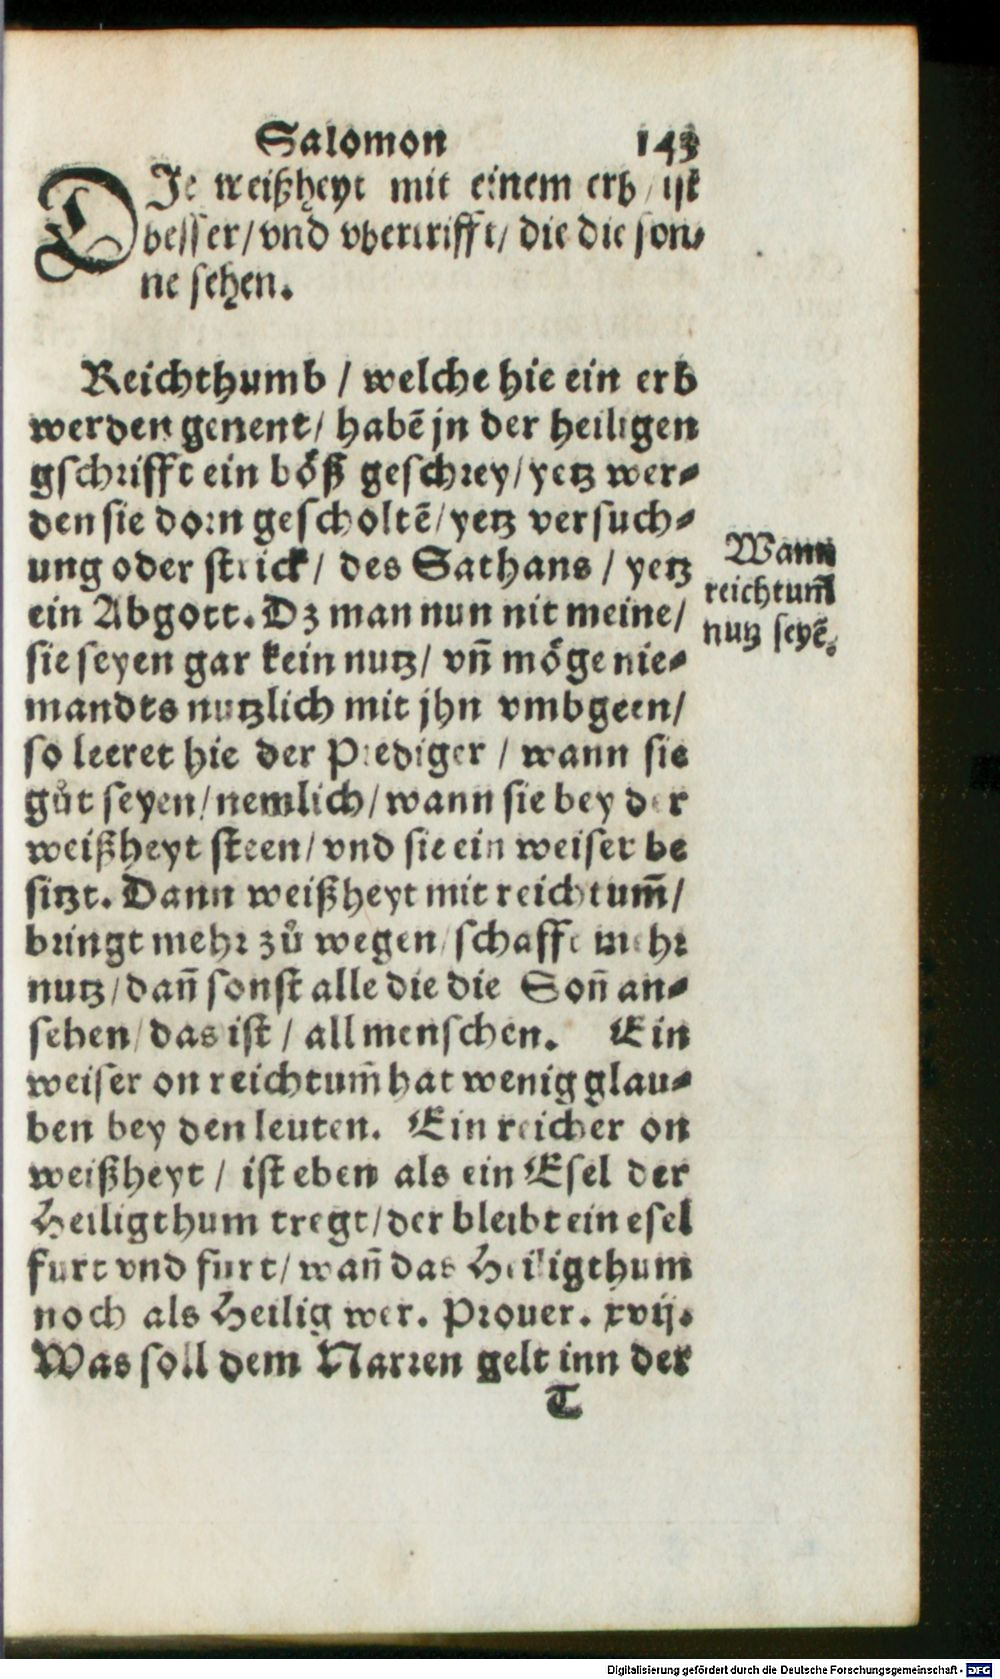 Salomon 143
DJe weißheyt mit einem erb / ist
besser / vnd vbertrifft / die die son⸗
ne sehen.
Reichthumb / welche hie ein erb
werden genent / habẽ jn der heiligen
gschrifft ein bôß geschrey / yetz wer⸗
den sie dorn gescholtẽ / yetz versuch⸗
ung oder strick / des Sathans / yetz
ein Abgott. Dz man nun nit meine /
sie seyen gar kein nutz / vñ môge nie⸗
mandts nutzlich mit jhn vmbgeen /
so leeret hie der Prediger / wann sie
gůt seyen / nemlich / wann sie bey der
weißheyt steen / vnd sie ein weiser be
sitzt. Dann weißheyt mit reichtum̃ /
bringt mehr zů wegen / schafft mehr
nutz / dañ sonst alle die die Soñ an⸗
sehen / das ist / all menschen. Ein
weiser on reichtum̃ hat wenig glau⸗
ben bey den leuten. Ein reicher on
weißheyt / ist eben als ein Esel der
Heiligthum tregt / der bleibt ein esel
furt vnd furt / wañ das Heiligthum
noch als Heilig wer. Prouer. xvij.
Was soll dem Narren gelt inn der
T
Wann
reichtum̃
nutz seyẽ.
Digitalisierung gefördert durch die Deutsche Forschungsgemeinschaft - DFG